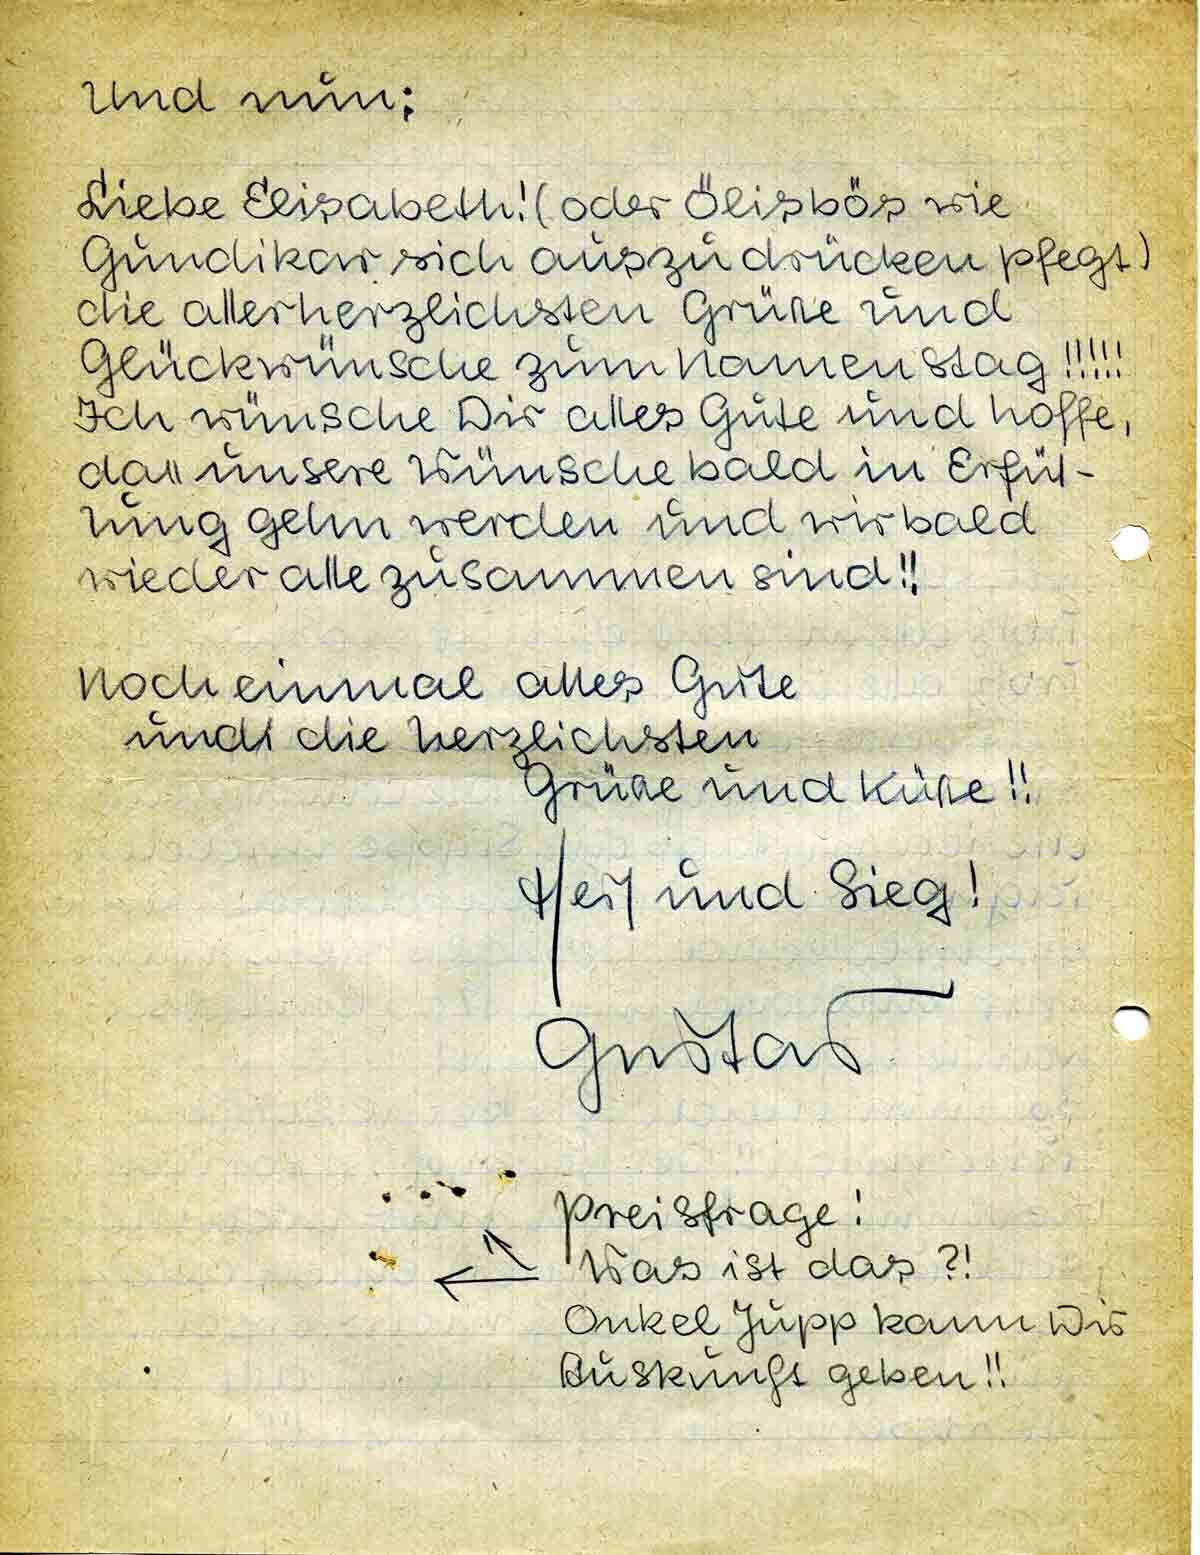 Und nun:
Liebe Elisabeth! (oder Ölisbös wie
Gundikar sich auszudrücken pfegt)
die allerherzlichsten Grüße und
Glückwünsche zum Namenstag!!!!!
Ich wünsche Dir alles Gute und hoffe,
daß unsere Wünsche bald in Erfül-
lung gehn werden und wir bald
wieder alle zusammen sind!!
Noch einmal alles Gute
und die herzlichsten
Grüße und Küße!!
Heil und Sieg!
Gustav
Preisfrage!
Was ist das?!
Onkel Jupp kann Dir
Auskunft geben!!